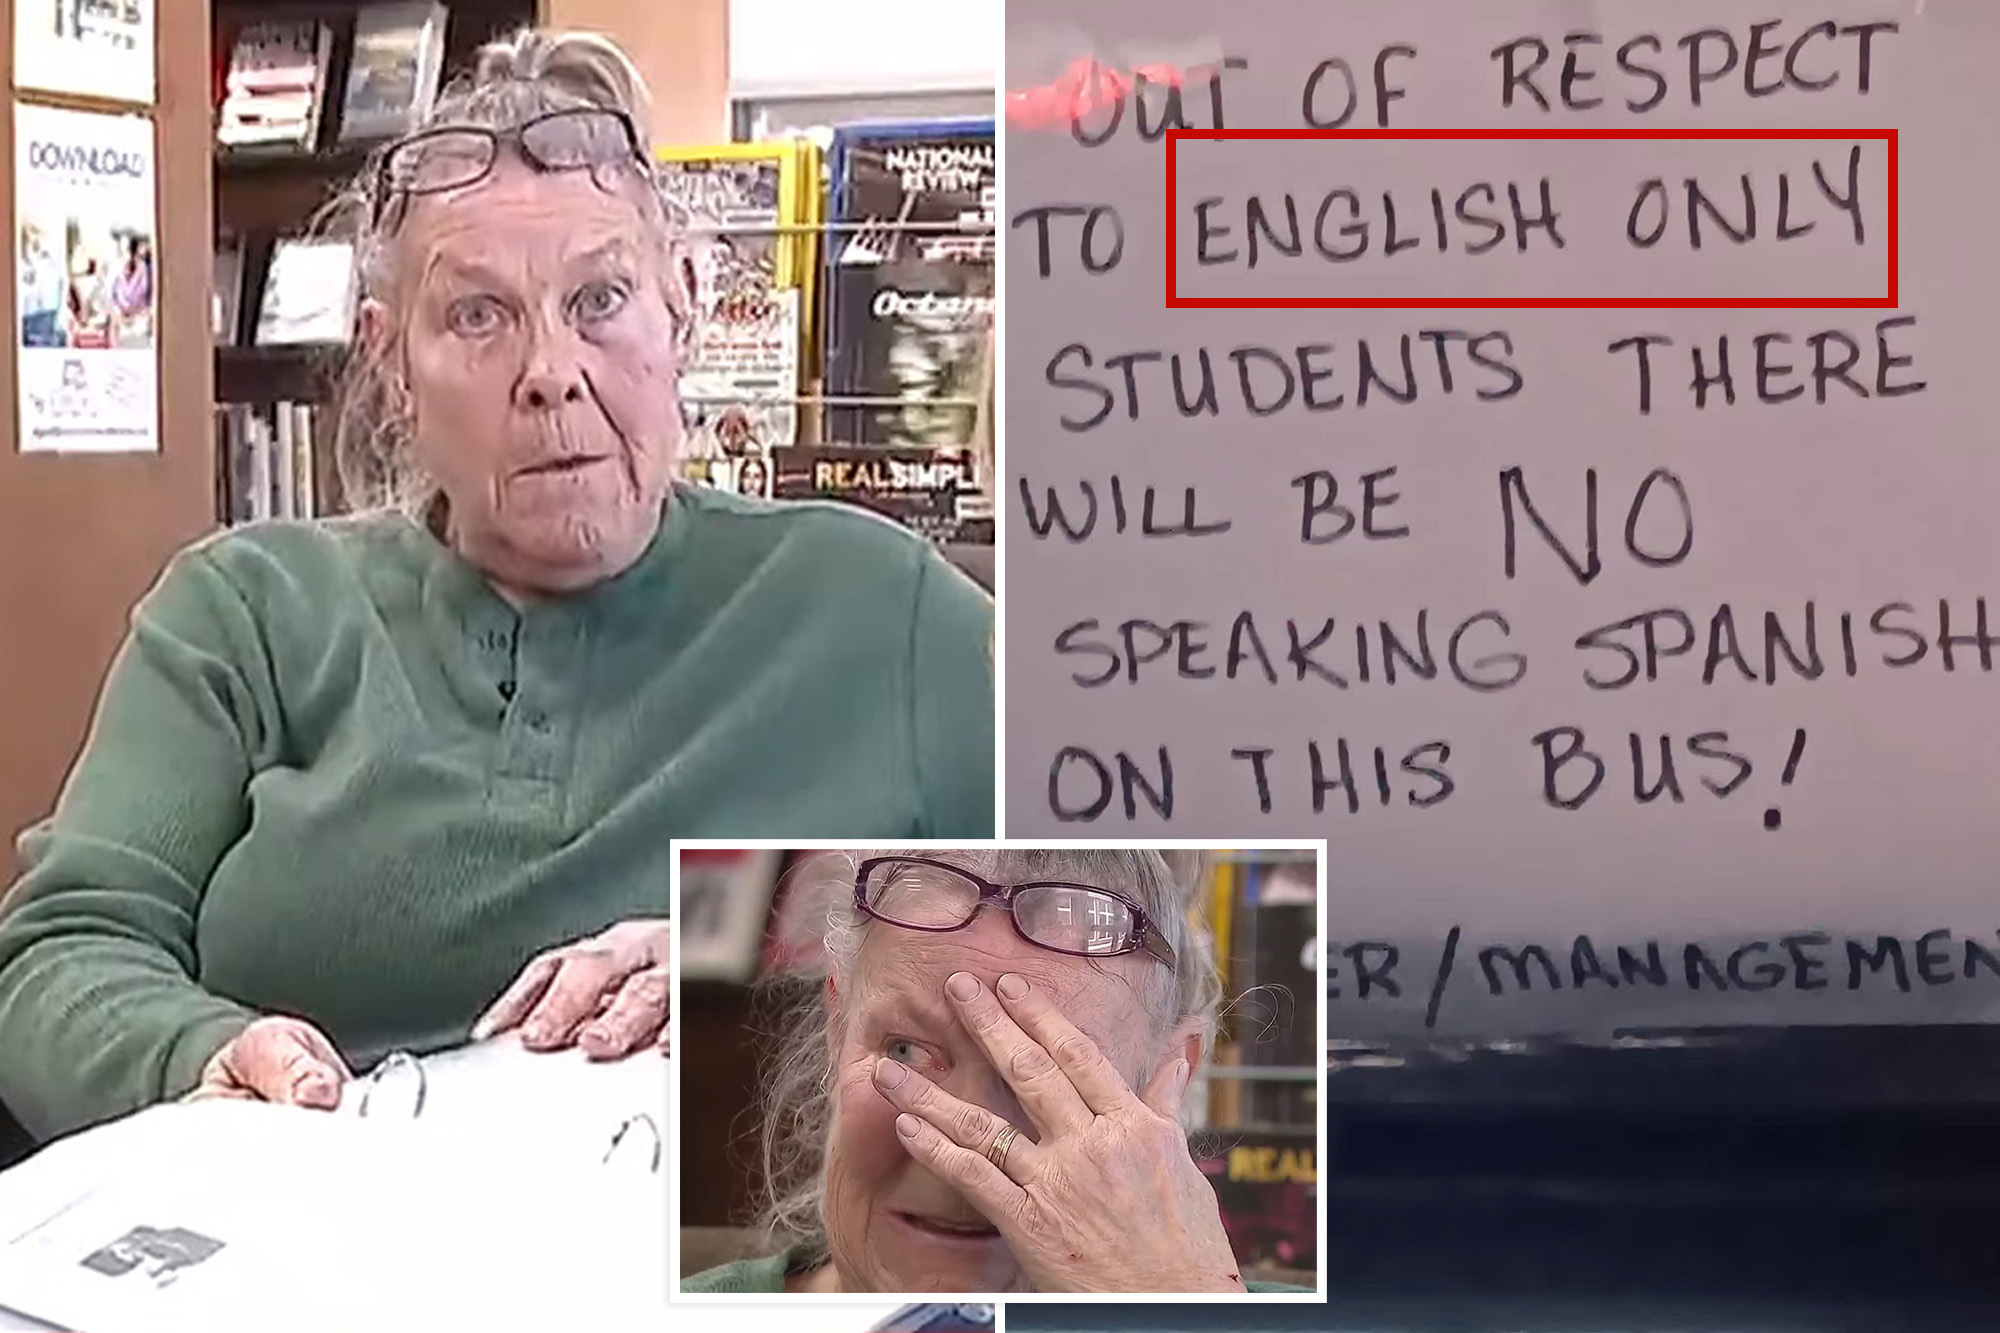 DOWNLOAD
NATIONAL
REVIEW
REALSIMPL
OUT OF RESPECT
TO ENGLISH ONLY
STUDENTS THERE
WILL BE NO
SPEAKING SPANISH
ON THIS BUS!
ER/MANAGEMEN
REAL